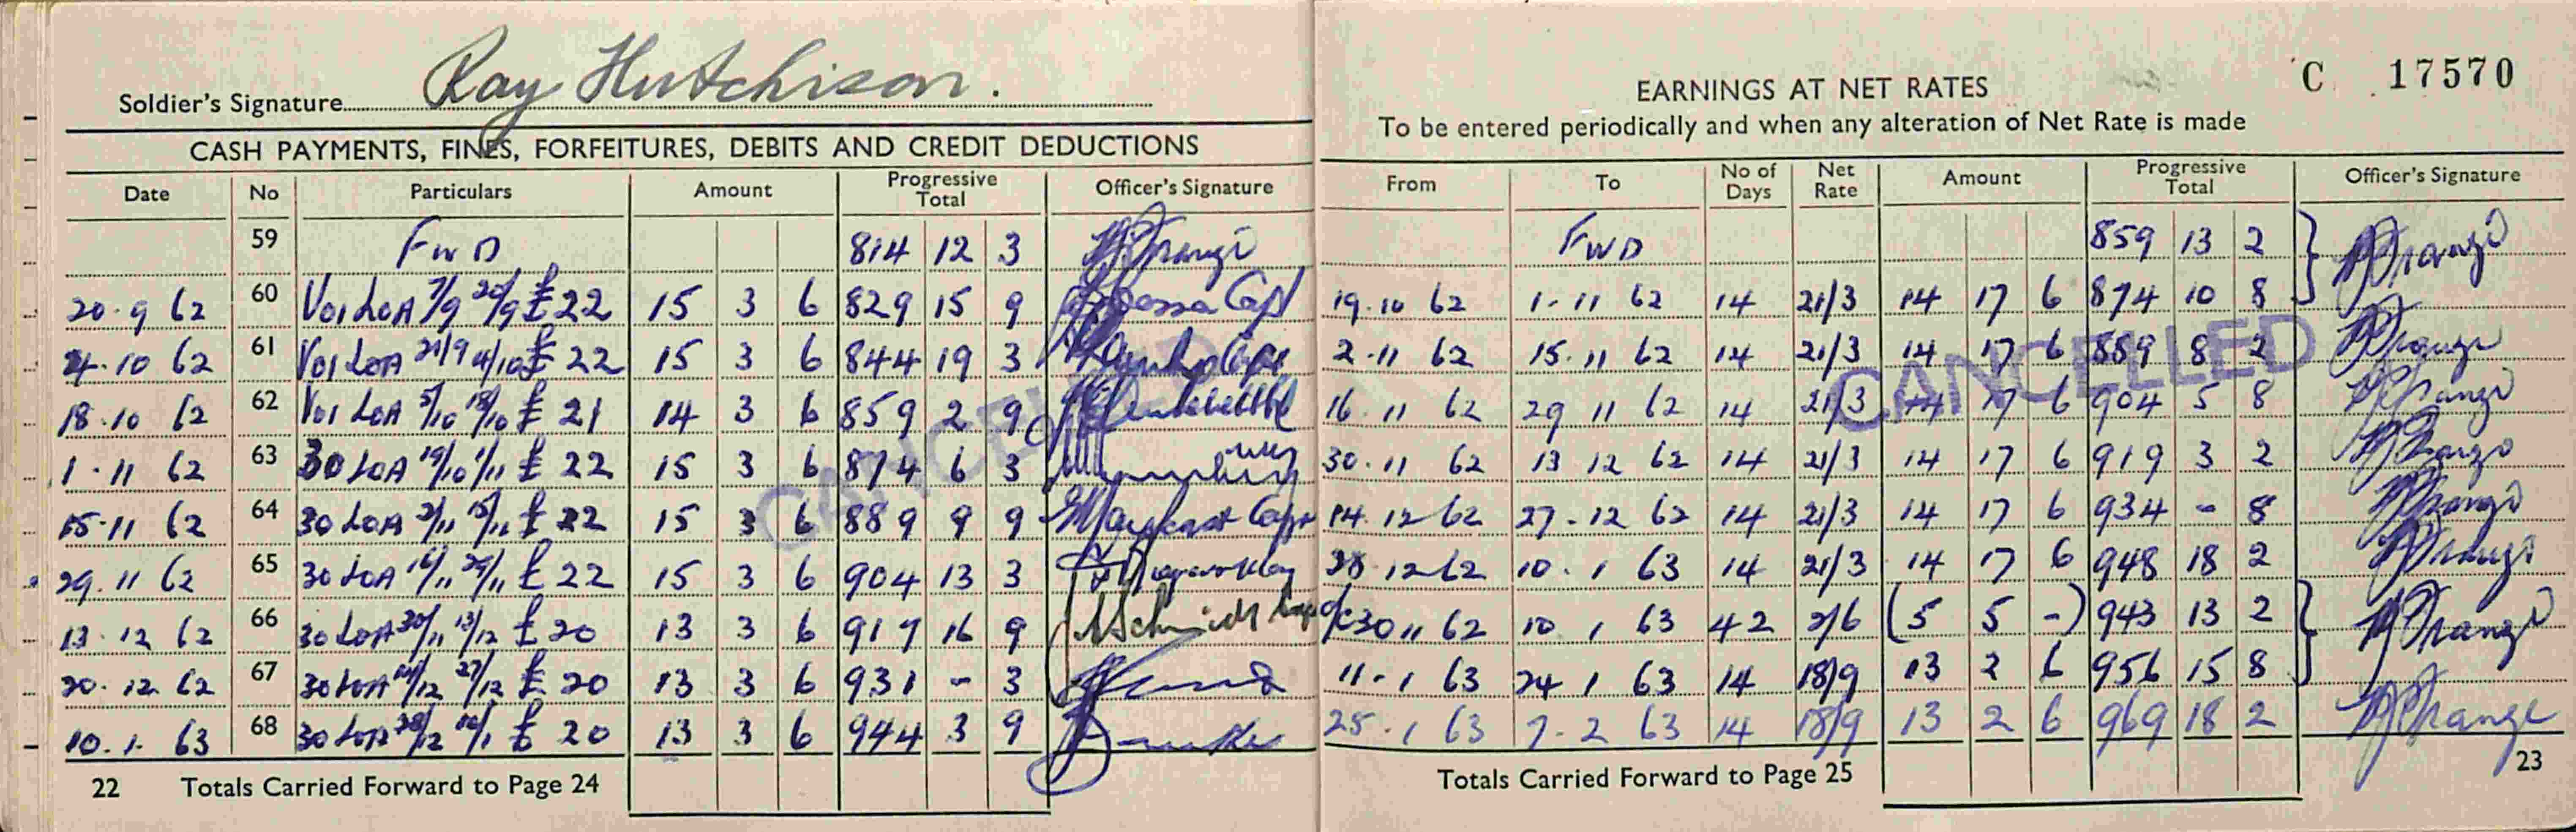 Soldier's Signature Ray Hutchison.
CASH PAYMENTS, FINES, FORFEITURES, DEBITS AND CREDIT DEDUCTIONS
Date No Particulars Amount Progressive Total Officer's Signature
59 FWD 814 12 3
20.9 62 60 V01 LOA 7/9 20/9 £22 15 3 6 829 15 9 Capt
4.10 62 61 V01 LOA 21/9 4/10 £ 22 15 3 6 844 19 3 Capt
18.10 62 62 V01 LOA 5/10 18/10 £ 21 14 3 6 859 2 9
1.11 62 63 30 LOA 19/10 1/11 £ 22 15 3 6 874 6 3
15.11 62 64 30 LOA 2/11 15/11 £ 22 15 3 6 889 9 9 Capt
29.11 62 65 30 LOA 16/11 29/11 £ 22 15 3 6 904 13 3
13.12 62 66 30 LOA 30/11 13/12 £ 20 13 3 6 917 16 9 Schmidt
20.12 62 67 30 LOA 14/12 27/12 £ 20 13 3 6 931 - 3
10.1.63 68 30 LOA 28/12 10/1 £ 20 13 3 6 944 3 9
CANCELLED
22 Totals Carried Forward to Page 24
C 17570
EARNINGS AT NET RATES
To be entered periodically and when any alteration of Net Rate is made
From To No of Days Net Rate Amount Progressive Total Officer's Signature
FWD 859 13 2
19.10 62 1.11 62 14 21/3 14 17 6 874 10 8
2.11 62 15.11 62 14 21/3 14 17 6 889 8 2
16.11 62 29 11 62 14 21/3 14 17 6 904 5 8
30.11 62 13 12 62 14 21/3 14 17 6 919 3 2
14.12 62 27.12 62 14 21/3 14 17 6 934 - 8
28.12 62 10.1 63 14 21/3 14 17 6 948 18 2
30 11 62 10 1 63 42 2/6 (5 5 -) 943 13 2
11.1 63 24 1 63 14 18/9 13 2 6 956 15 8
25.1 63 7.2 63 14 18/9 13 2 6 969 18 2
CANCELLED
Totals Carried Forward to Page 25 23